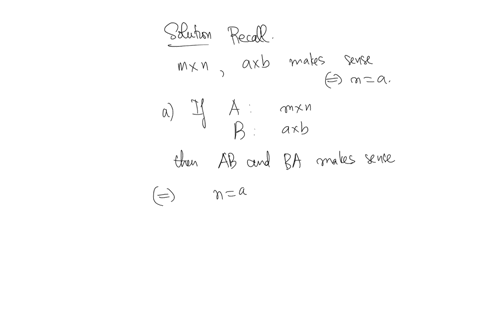 Solution Recall.
m×n, a×b makes sense
(=) n=a.
a) If A: m×n
B: a×b
then AB and BA makes sense
(=) n=a